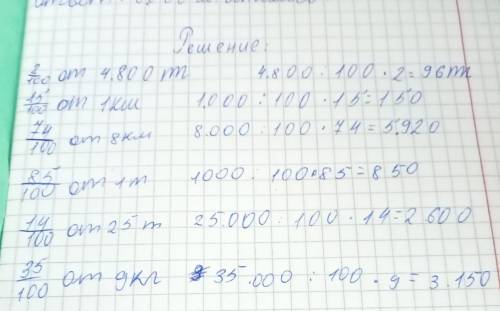 Решение:
2/100 от 4.800 т 4.800 : 100 · 2 = 96т
15/100 от 1км 1.000 : 100 · 15 = 150
74/100 от 8км 8.000 : 100 · 74 = 5.920
85/100 от 1т 1000 : 100 · 85 = 850
14/100 от 25 т 25.000 : 100 · 14 = 2.600
35/100 от 9кг 35.000 : 100 · 9 = 3.150